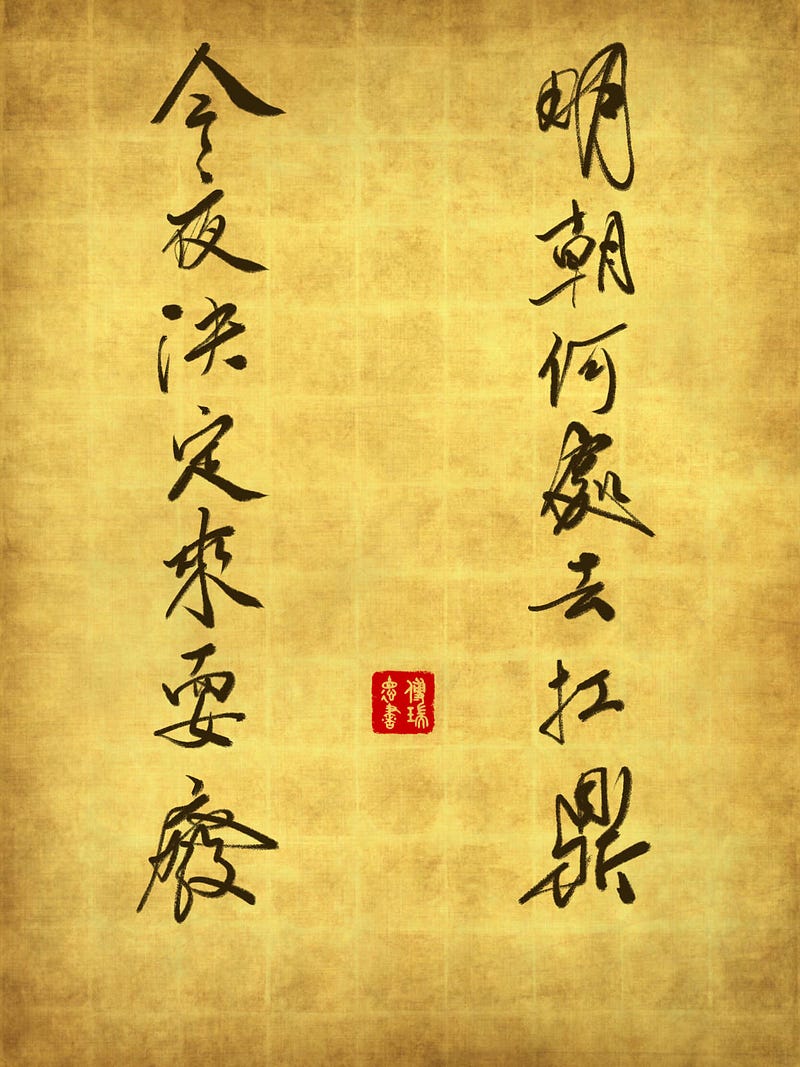 明朝何處去扛鼎
今夜決定來耍廢
傅瑞
忠書